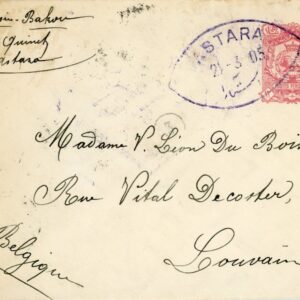 Bakou
Quinet
Astara
ASTARA
21-3 05
Madame V. Léon Du Bois
Rue Vital Decoster,
Louvain
Belgique